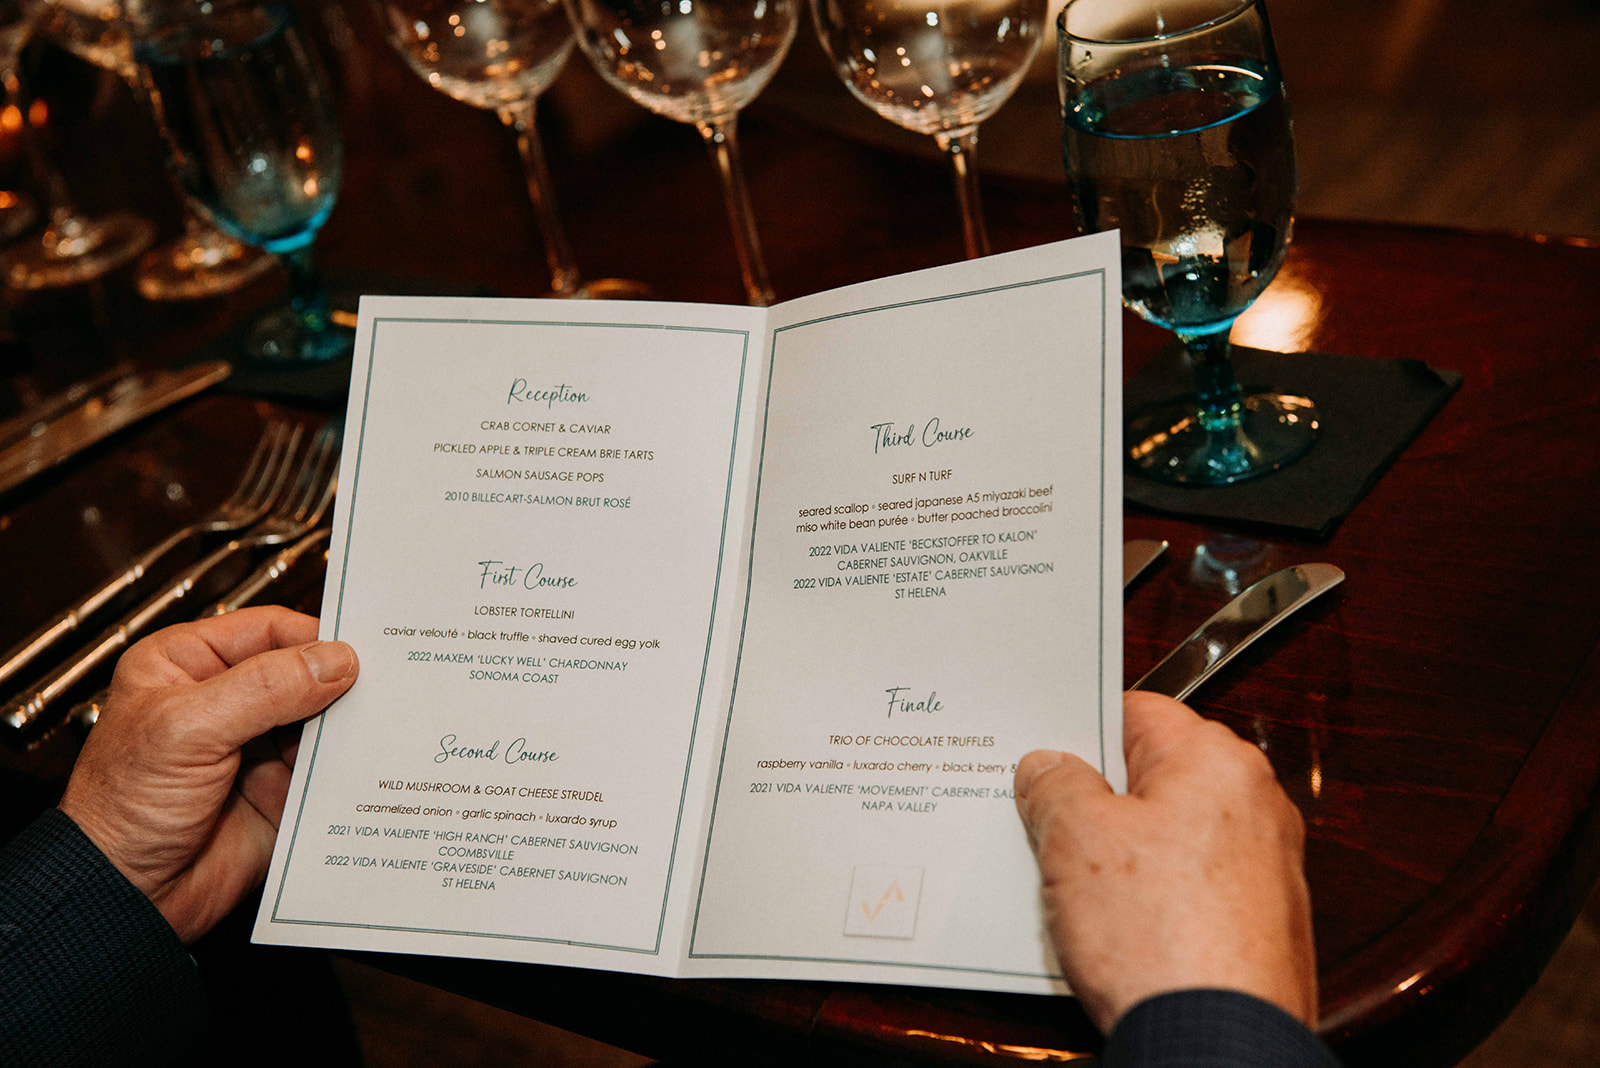 Reception
CRAB CORNET & CAVIAR
PICKLED APPLE & TRIPLE CREAM BRIE TARTS
SALMON SAUSAGE POPS
2010 BILLECART-SALMON BRUT ROSÉ
First Course
LOBSTER TORTELLINI
caviar velouté ◦ black truffle ◦ shaved cured egg yolk
2022 MAXEM ‘LUCKY WELL’ CHARDONNAY
SONOMA COAST
Second Course
WILD MUSHROOM & GOAT CHEESE STRUDEL
caramelized onion ◦ garlic spinach ◦ luxardo syrup
2021 VIDA VALIENTE ‘HIGH RANCH’ CABERNET SAUVIGNON
COOMBSVILLE
2022 VIDA VALIENTE ‘GRAVESIDE’ CABERNET SAUVIGNON
ST HELENA
Third Course
SURF N TURF
seared scallop ◦ seared japanese A5 miyazaki beef
miso white bean purée ◦ butter poached broccolini
2022 VIDA VALIENTE ‘BECKSTOFFER TO KALON’
CABERNET SAUVIGNON, OAKVILLE
2022 VIDA VALIENTE ‘ESTATE’ CABERNET SAUVIGNON
ST HELENA
Finale
TRIO OF CHOCOLATE TRUFFLES
raspberry vanilla ◦ luxardo cherry ◦ black berry &
2021 VIDA VALIENTE ‘MOVEMENT’ CABERNET SAU
NAPA VALLEY